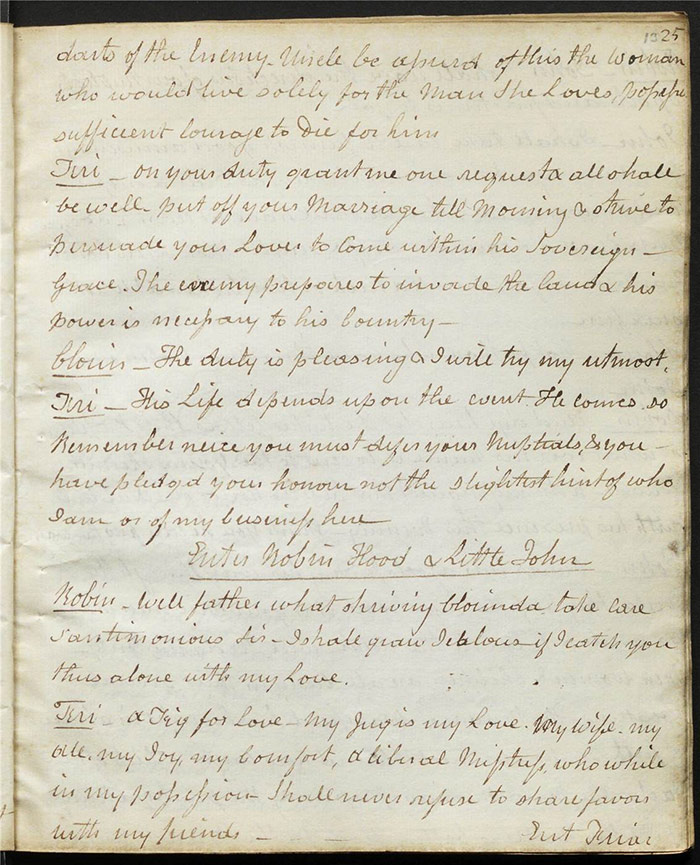 1325
darts of the Enemy - Uncle be assured of this the Woman
who would live solely for the Man She Loves, possess
sufficient Courage to Die for him
Fri - on your duty grant me one request & all shall
be well - put off your Marriage till Morning & strive to
Persuade your Lover to Come within his Sovereign -
Grace. The enemy prepares to invade the land & his
Power is necessary to his Country -
Clorin - The duty is pleasing & I will try my utmost.
Fri - His Life depends upon the event He comes so
Remember neice you must defer your Nuptials, & you -
have pledgd your honour not the slightest hint of who
I am or of my business here
Enter Robin Hood & Little John
Robin - Well father what shriving Clorinda take care
Santimonious Sir - I shall grow Jealous if I catch you
thus alone with my Love.
Fri - a Fig for Love - My Jug is my Love. My Wife - my
all. my Joy, my Comfort, a liberal Mistress, who while
in my possession Shall never refuse to share favors
with my friends - - Exit Friar